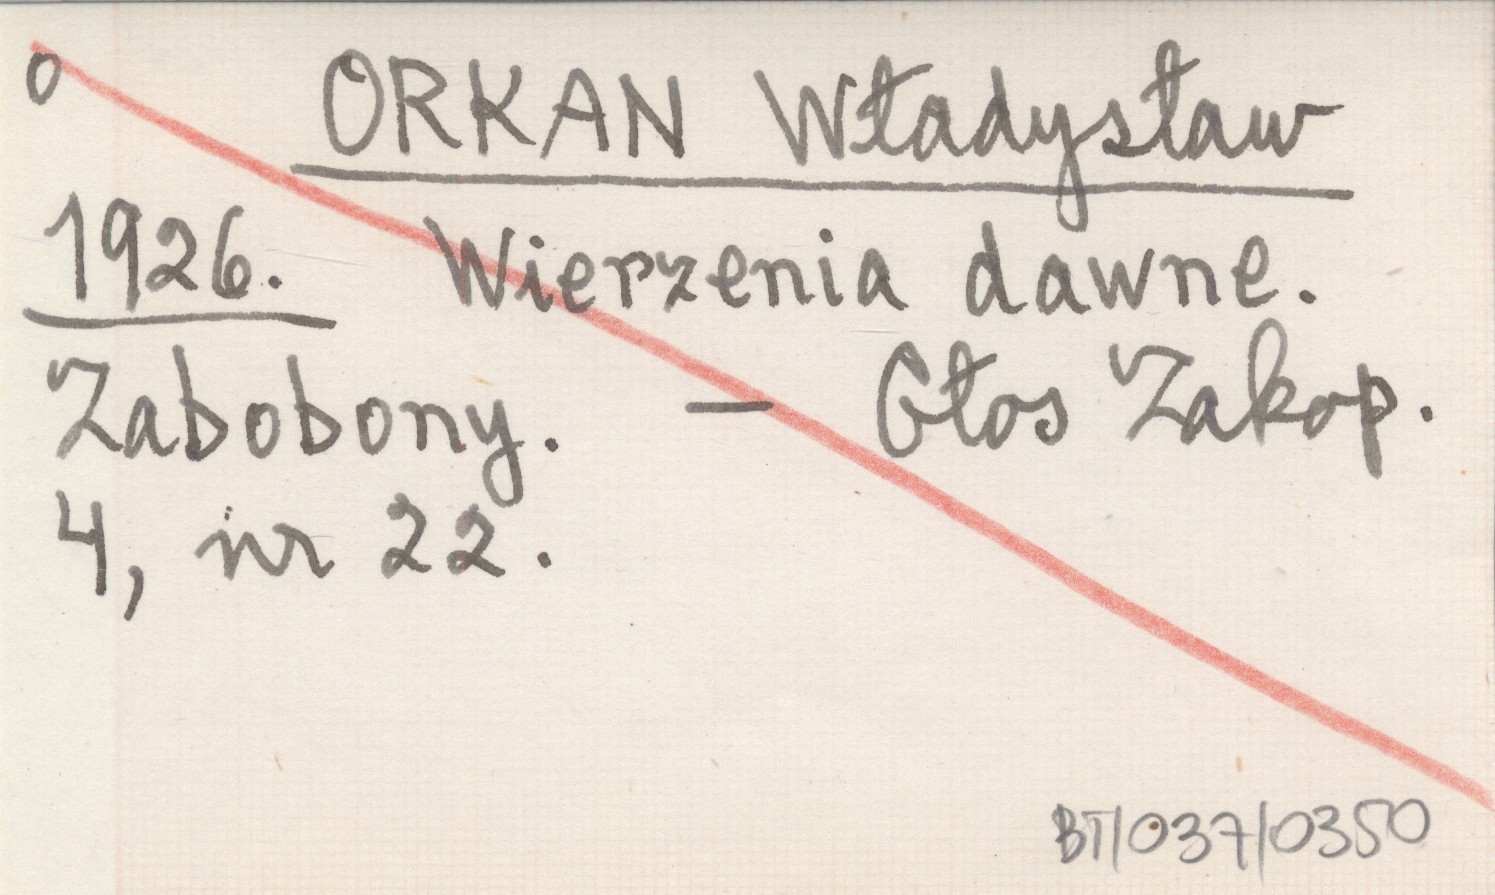 o
ORKAN Władysław
1926. Wierzenia dawne.
Zabobony. — Głos Zakop.
4, nr 22.
BT/037/0350